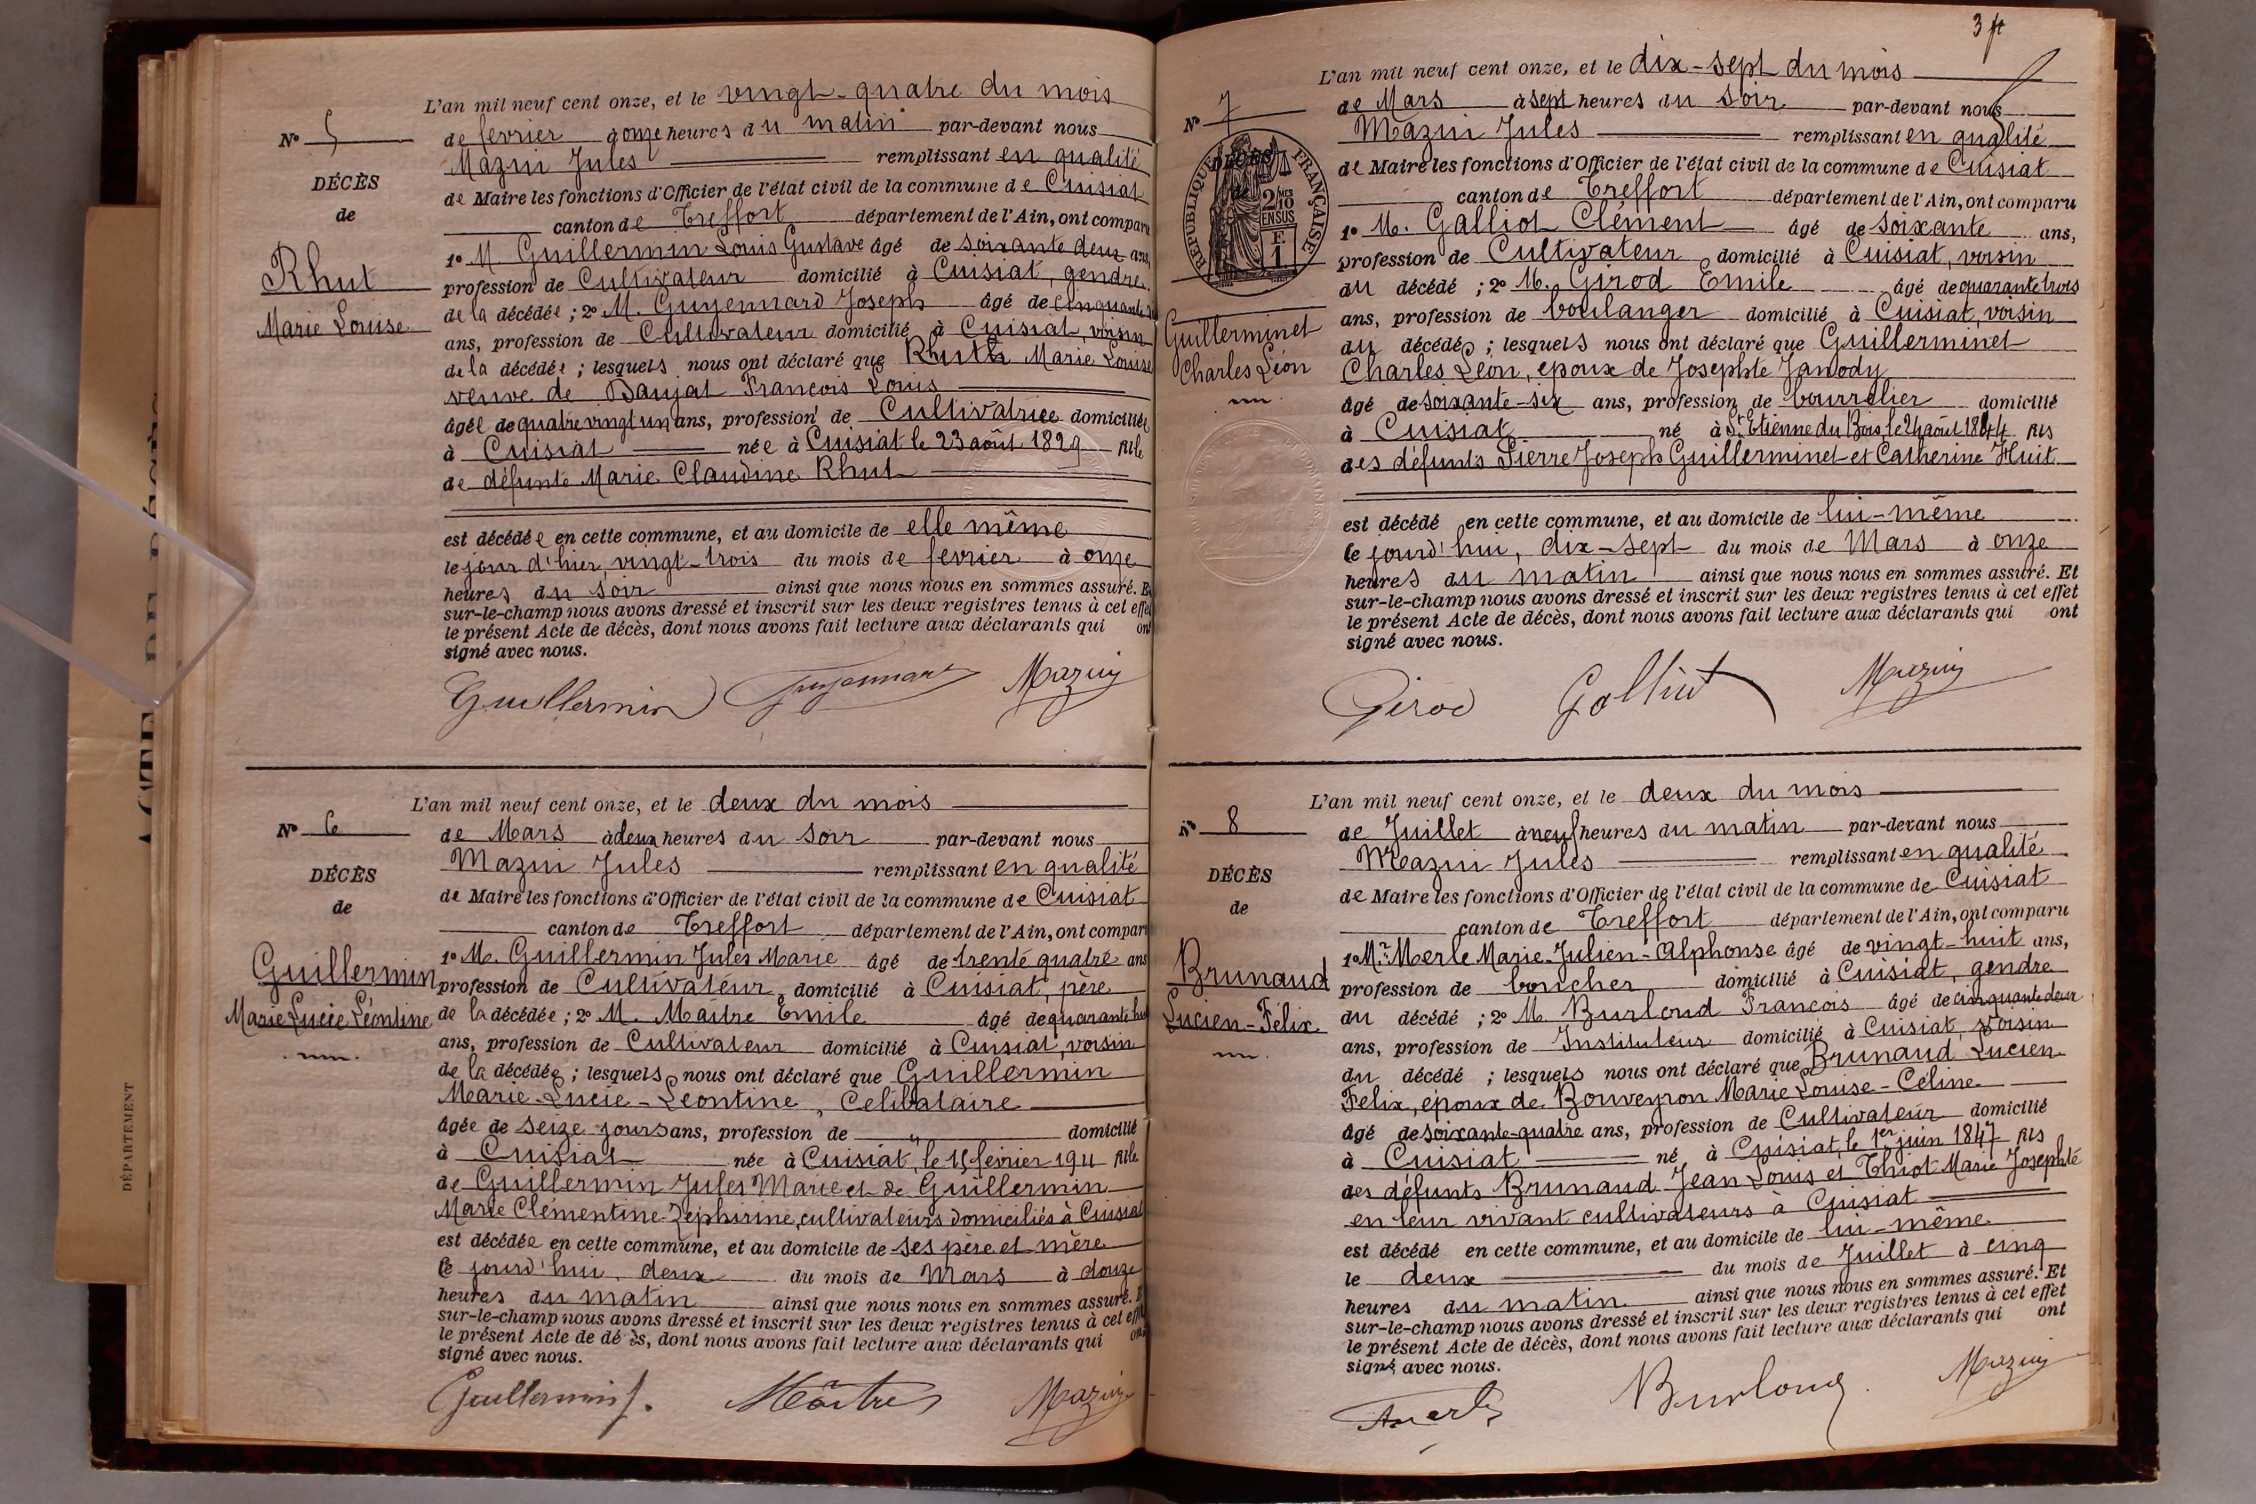 L'an mil neuf cent onze, et le vingt-quatre du mois
N° 5
de février à onze heures du matin par-devant nous
Mazui Jules remplissant en qualité
DÉCÈS
de Maire les fonctions d'Officier de l'état civil de la commune de Cuisiat
de
canton de Treffort département de l'Ain, ont comparu
1° M Guillermin Louis Gustave âgé de soixante deux ans,
Rhut
profession de Cultivateur domicilié à Cuisiat, gendre
Marie Louise
de la décédée ; 2° M. Guyennard Joseph âgé de cinquante
ans, profession de Cultivateur domicilié à Cuisiat, voisin
de la décédée ; lesquels nous ont déclaré que Rhuth Marie Louise
veuve de Baujat François Louis
âgée de quatre vingt un ans, profession de Cultivatrice domiciliée
à Cuisiat née à Cuisiat le 23 août 1829 fille
de défunte Marie Claudine Rhut
est décédée en cette commune, et au domicile de elle même
le jour d'hier, vingt-trois du mois de février à onze
heures du soir ainsi que nous nous en sommes assuré. E
sur-le-champ nous avons dressé et inscrit sur les deux registres tenus à cet effet
le présent Acte de décès, dont nous avons fait lecture aux déclarants qui ont
signé avec nous.
Guillermin Guyennard Mazuy
L'an mil neuf cent onze, et le deux du mois
N° 6
de Mars à deux heures du soir par-devant nous
Mazui Jules remplissant en qualité
DÉCÈS
de Maire les fonctions d'Officier de l'état civil de la commune de Cuisiat
de
canton de Treffort département de l'Ain, ont compar
1° M. Guillermin Jules Marie âgé de trente quatre ans
Guillermin
profession de Cultivateur domicilié à Cuisiat, père
Marie Lucie Léontine
de la décédée ; 2° M. Maître Emile âgé de quarante huit
ans, profession de Cultivateur domicilié à Cuisiat, voisin
de la décédée ; lesquels nous ont déclaré que Guillermin
Marie-Lucie-Léontine, Celibataire
âgée de seize jours ans, profession de " domicilié
à Cuisiat née à Cuisiat, le 15 février 1911 fille
de Guillermin Jules Marie et de Guillermin
Marie Clémentine Zéphirine, cultivateurs domiciliés à Cuisiat
est décédée en cette commune, et au domicile de ses père et mère
le jourd'hui, deux du mois de Mars à douze
heures du matin ainsi que nous nous en sommes assuré. E
sur-le-champ nous avons dressé et inscrit sur les deux registres tenus à cet effet
le présent Acte de dé ès, dont nous avons fait lecture aux déclarants qui ont
signé avec nous.
Guillermin J. Maître Mazuy
DÉPARTEMENT
3 ft
L'an mil neuf cent onze, et le dix-sept du mois
N° 7
de Mars à sept heures du soir par-devant nous
Mazui Jules remplissant en qualité
DÉCÈS
de
RÉPUBLIQUE FRANÇAISE
2/10 EN SUS
F. 1
de Maire les fonctions d'Officier de l'état civil de la commune de Cuisiat
canton de Treffort département de l'Ain, ont comparu
1° M. Galliot Clément âgé de soixante ans,
profession de Cultivateur domicilié à Cuisiat, voisin
du décédé ; 2° M. Girod Emile âgé de quarante trois
ans, profession de boulanger domicilié à Cuisiat, voisin
Guillerminet
du décédé ; lesquels nous ont déclaré que Guillerminet
Charles Léon
Charles Léon, époux de Josephte Janody
âgé de soixante-six ans, profession de bourrelier domicilié
à Cuisiat né à St Etienne du Bois, le 24 août 1844 fils
des défunts Pierre Joseph Guillerminet et Catherine Huit
est décédé en cette commune, et au domicile de lui-même
le jourd'hui, dix-sept du mois de Mars à onze
heures du matin ainsi que nous nous en sommes assuré. Et
sur-le-champ nous avons dressé et inscrit sur les deux registres tenus à cet effet
le présent Acte de décès, dont nous avons fait lecture aux déclarants qui ont
signé avec nous.
Girod Galliot Mazuy
L'an mil neuf cent onze, et le deux du mois
N° 8
de Juillet à neuf heures du matin par-devant nous
Mazui Jules remplissant en qualité
DÉCÈS
de Maire les fonctions d'Officier de l'état civil de la commune de Cuisiat
de
canton de Treffort département de l'Ain, ont comparu
1° Mr. Merle Marie-Julien-Alphonse âgé de vingt-huit ans,
Brunaud
profession de boucher domicilié à Cuisiat, gendre
Lucien-Félix
du décédé ; 2° M Burloud François âgé de cinquante deux
ans, profession de Instituteur domicilié à Cuisiat, voisin
du décédé ; lesquels nous ont déclaré que Brunaud Lucien
Felix, époux de Bouveyron Marie Louise-Céline
âgé de soixante-quatre ans, profession de Cultivateur domicilié
à Cuisiat né à Cuisiat, le 1er juin 1847 fils
des défunts Brunaud Jean Louis et Thiot Marie Josephté
en leur vivant cultivateurs à Cuisiat
est décédé en cette commune, et au domicile de lui-même
le deux du mois de Juillet à cinq
heures du matin ainsi que nous nous en sommes assuré. Et
sur-le-champ nous avons dressé et inscrit sur les deux registres tenus à cet effet
le présent Acte de décès, dont nous avons fait lecture aux déclarants qui ont
signé avec nous.
Merle Burloud Mazuy